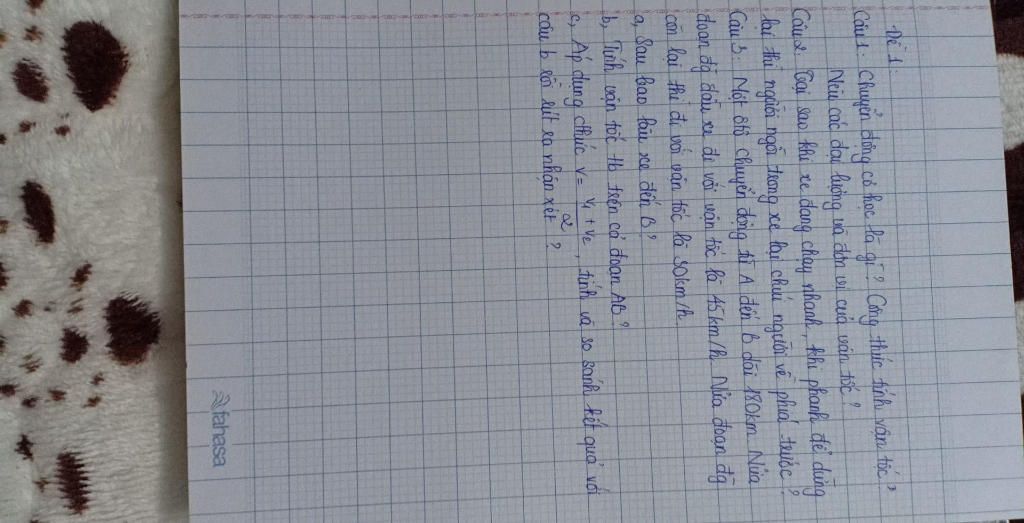 Đề 1:
Câu 1: Chuyển động cơ học là gì? Công thức tính vận tốc?
Nêu các đại lượng và đơn vị của vận tốc?
Câu 2: Tại sao khi xe đang chạy nhanh, khi phanh để dừng
lại thì người ngồi trong xe lại chúi người về phía trước?
Câu 3: Một ôtô chuyển động từ A đến B dài 180km Nửa
đoạn đg đầu xe đi với vận tốc là 45km/h. Nửa đoạn đg
còn lại thì đi với vận tốc là 30km/h.
a, Sau bao lâu xe đến B?
b, Tính vận tốc tb trên cả đoạn AB?
c, Áp dụng thức v = v1 + v2 / 2, tính và so sánh kết quả với
câu b rồi rút ra nhận xét?
fahasa